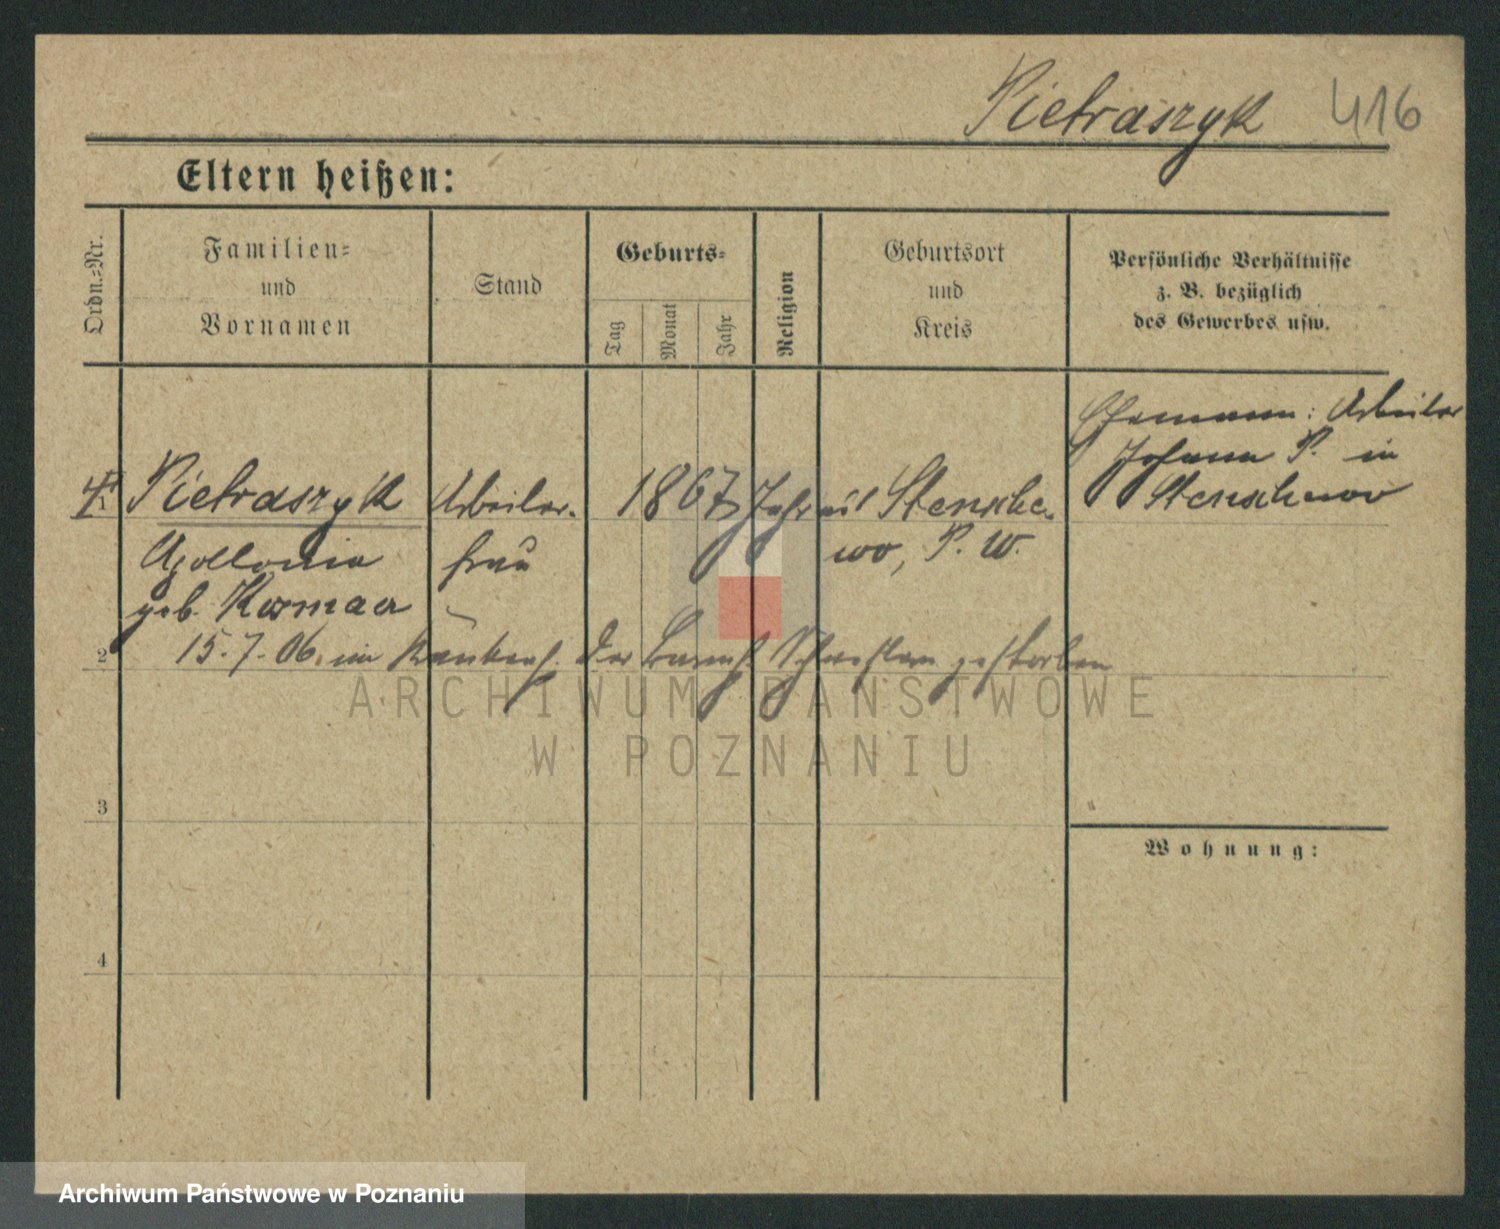 Pietraszyk 416
Eltern heißen:
Ordn.=Nr.
Familien=
und
Vornamen
Stand
Geburts=
Tag
Monat
Jahr
Religion
Geburtsort
und
Kreis
Persönliche Verhältnisse
z. B. bezüglich
des Gewerbes usw.
Ehemann: Arbeiter
Johann P. in
Stenschewo
Pietraszyk Arbeiter- 1867 Stensche-
Apollonia frau wo, P. W.
geb.
2 15.7.06. im Krankenh. der barmh. Schwestern gestorben
3
4
Wohnung:
ARCHIWUM PAŃSTWOWE
W POZNANIU
Archiwum Państwowe w Poznaniu